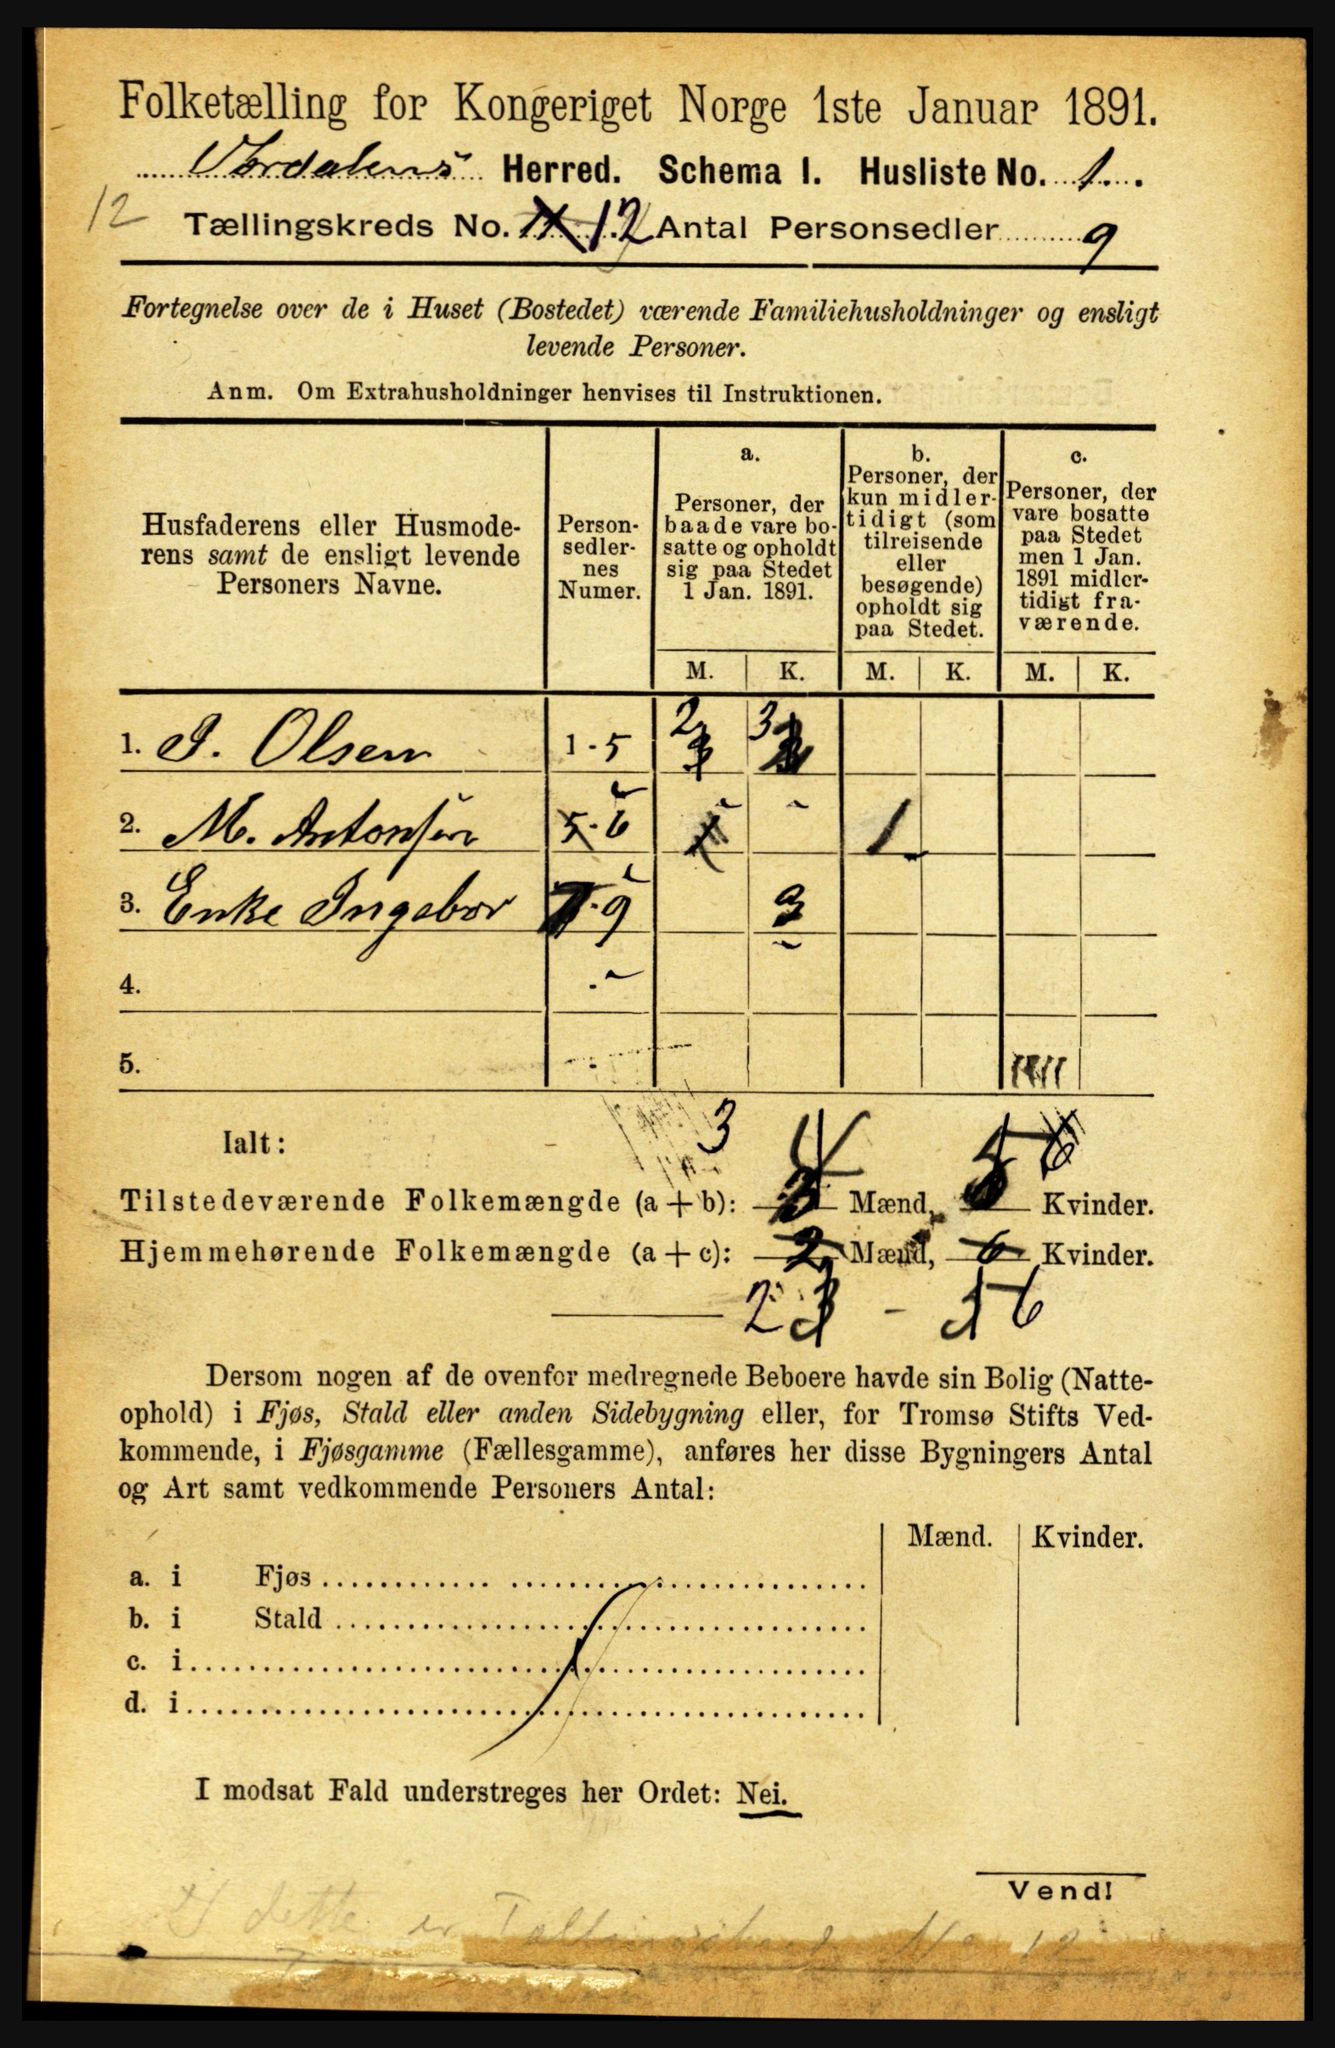 Folketælling for Kongeriget Norge 1ste Januar 1891.
Herred. Schema I. Husliste No. 1.
12 Tællingskreds No. 12 Antal Personsedler 9
Fortegnelse over de i Huset (Bostedet) værende Familiehusholdninger og ensligt
levende Personer.
Anm. Om Extrahusholdninger henvises til Instruktionen.
Husfaderens eller Husmode-
rens samt de ensligt levende
Personers Navne.
Person-
sedler-
nes
Numer.
a.
Personer, der
baade vare bo-
satte og opholdt
sig paa Stedet
1 Jan. 1891.
b.
Personer, der
kun midler-
tidigt (som
tilreisende
eller
besøgende)
opholdt sig
paa Stedet.
c.
Personer, der
vare bosatte
paa Stedet
men 1 Jan.
1891 midler-
tidigt fra-
værende.
M. K. M. K. M. K.
1. J. Olsen 1-5 2 3
2. M. Antonsen 5-6 1 1
3. Enke Ingebor 7-9 3
4.
5.
Ialt:
3 4 5 6
Tilstedeværende Folkemængde (a + b): 3 Mænd, Kvinder.
Hjemmehørende Folkemængde (a + c): 2 Mænd, 6 Kvinder.
2 - 6
Dersom nogen af de ovenfor medregnede Beboere havde sin Bolig (Natte-
ophold) i Fjøs, Stald eller anden Sidebygning eller, for Tromsø Stifts Ved-
kommende, i Fjøsgamme (Fællesgamme), anføres her disse Bygningers Antal
og Art samt vedkommende Personers Antal:
Mænd. Kvinder.
a. i Fjøs
b. i Stald
c. i
d. i
I modsat Fald understreges her Ordet: Nei.
Vend!
I dette er Tællingskreds No 12